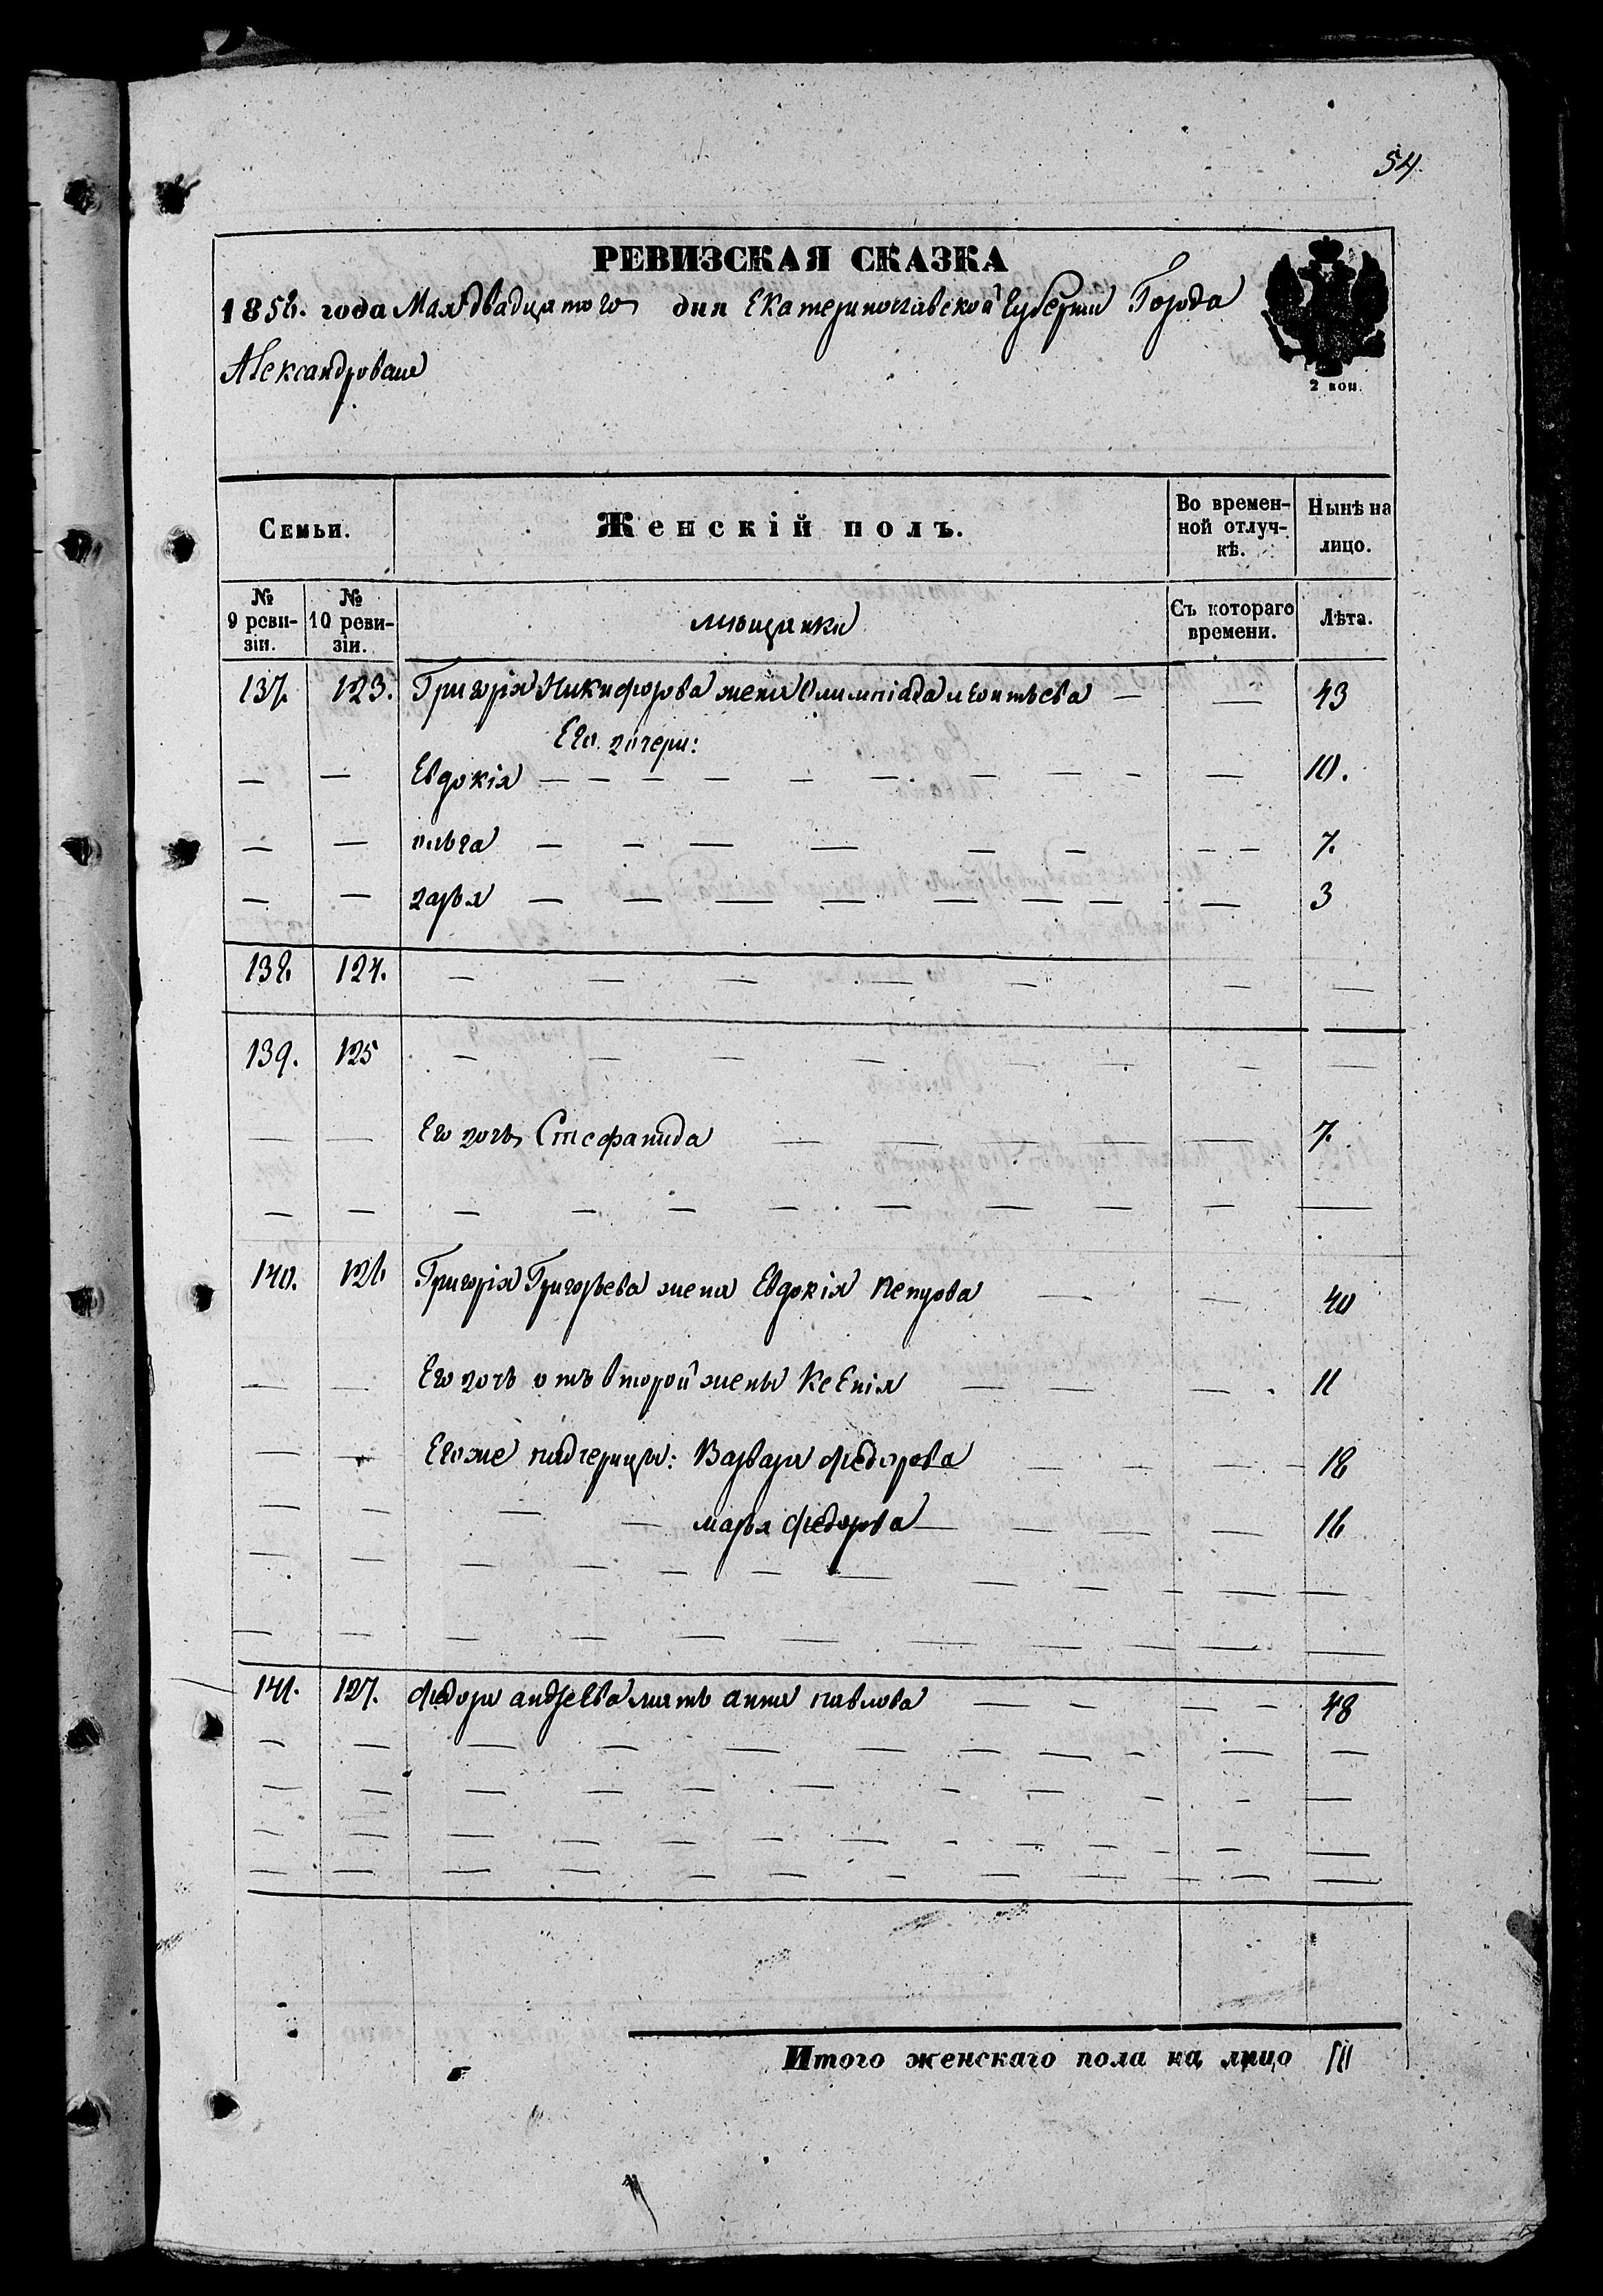 54.
РЕВИЗСКАЯ СКАЗКА
1858. года Мая двадцятого дня Екатеринославской Губерніи Города
Александровска
2 коп.
Семьи.
Женскій полъ.
Во времен-
ной отлуч-
кѣ.
Нынѣ на
лицо.
№
9 реви-
зіи.
№
10 реви-
зіи.
мѣщанки
Съ котораго
времени.
Лѣта.
137. 123. Григорія Никифорова жена Олимпіада Леонтьева — — 43
Его дочери:
— — Евдокія — — — — — — — — — — 10.
— — Ольга — — — — — — — — 7.
— — Дарья — — — — — — — — — 3
138. 124. — — — — — — —
139. 125 — — — — — — — —
— — Его дочь Стефанида — — — — — 7.
— — — — — — — — — — —
140. 126 Григорія Григорьева жена Евдокія Петрова — — 40
— — Его дочь отъ второй жены Ксенія — — — 11
— — Его же падчерицы: Варвара Федорова — — — — 18
— — — — Марья Федорова — — — — 16
— — — — — — — — — — — —
— — — — — — — — — — —
141. 127. Федора Андреева мать Анна Павлова — — — — — 48
— — — — — — — — — — —
— — — — — — — — — — —
— — — — — — — — — — — —
— — — — — — — — — — — —
Итого женскаго пола на лицо 10